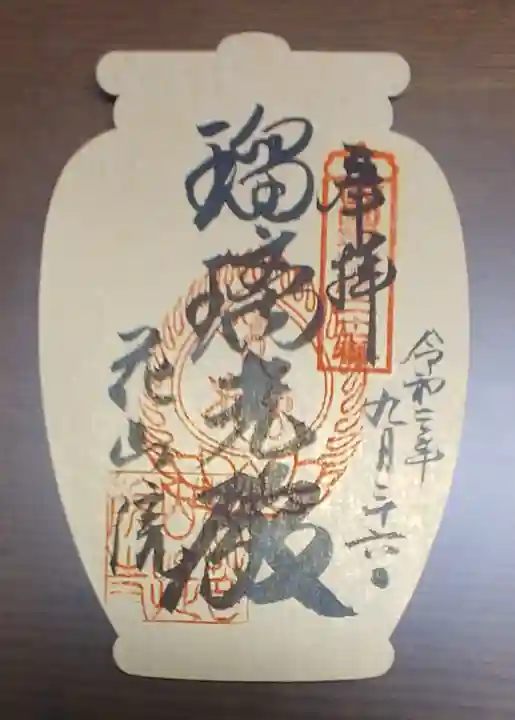 奉拝
令和二年
九月二十六日
瑠璃光殿
花山院